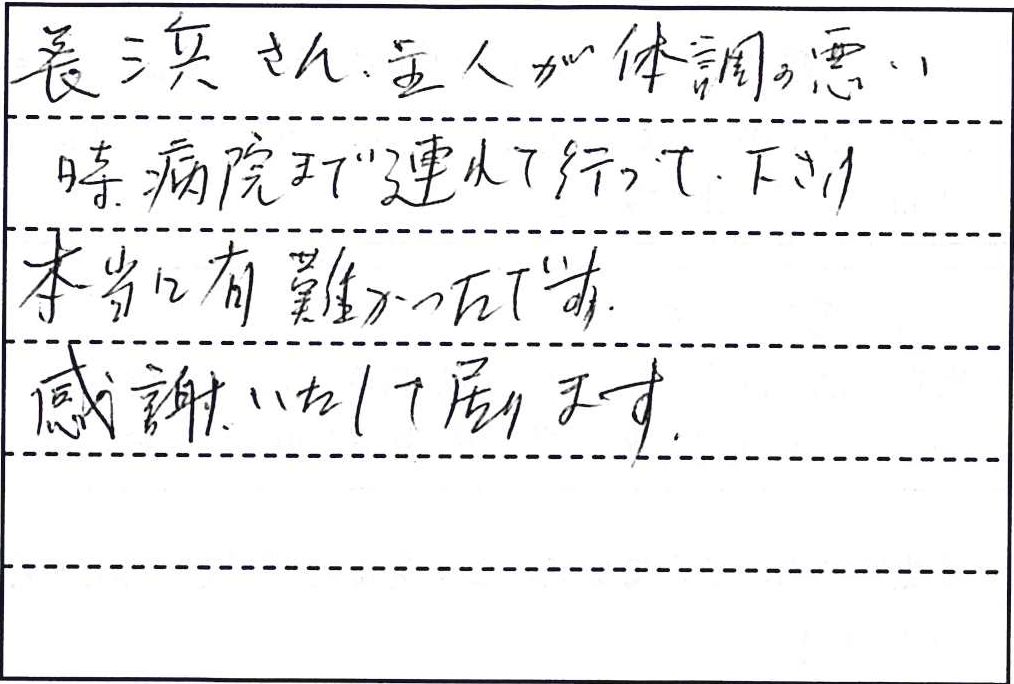 長浜さん、主人が体調の悪い
時、病院まで連れて行って、下さり
本当に有難かったです。
感謝いたして居ります。